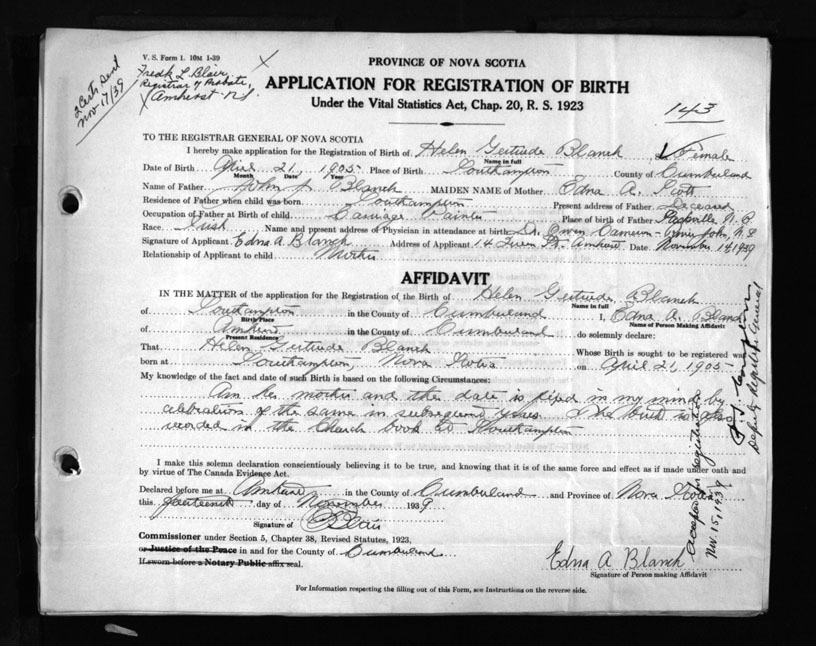 V. S. Form 1. 10M 1-39
Fredk L. Blair
Registrar of Probate,
Amherst N.S.
2 Certs Sent
Nov 17/39
PROVINCE OF NOVA SCOTIA
APPLICATION FOR REGISTRATION OF BIRTH
Under the Vital Statistics Act, Chap. 20, R. S. 1923
143
TO THE REGISTRAR GENERAL OF NOVA SCOTIA
I hereby make application for the Registration of Birth of Helen Gertrude Blanch Female
Name in full
Date of Birth April 21, 1905 Place of Birth Southampton County of Cumberland
Month Date Year
Name of Father John Blanch MAIDEN NAME of Mother Edna A. Scott
Residence of Father when child was born Southampton Present address of Father Deceased
Occupation of Father at Birth of child Carriage Painter Place of birth of Father Sackville, N. B.
Race Irish Name and present address of Physician in attendance at birth Dr. Owen Cameron - River John, N.S.
Signature of Applicant Edna A Blanch Address of Applicant 14 Queen St. Amherst Date November 14, 1939
Relationship of Applicant to child Mother
AFFIDAVIT
IN THE MATTER of the application for the Registration of the Birth of Helen Gertrude Blanch
Name in full
of Southampton in the County of Cumberland I, Edna A. Blanch
Birth Place Name of Person Making Affidavit
of Amherst in the County of Cumberland do solemnly declare:
Present Residence
That Helen Gertrude Blanch Whose Birth is sought to be registered was
born at Southampton, Nova Scotia on April 21, 1905
My knowledge of the fact and date of such Birth is based on the following Circumstances:
Am her mother and the date is fixed in my mind by
celebrations of the same in subsequent years. & the birth is also
recorded in the Church book at Southampton
I make this solemn declaration conscientiously believing it to be true, and knowing that it is of the same force and effect as if made under oath and
by virtue of The Canada Evidence Act.
Declared before me at Amherst in the County of Cumberland and Province of Nova Scotia
this fourteenth day of November 1939
Signature of Blair
Commissioner under Section 5, Chapter 38, Revised Statutes, 1923,
or Justice of the Peace in and for the County of Cumberland
If sworn before a Notary Public affix seal.
Edna A Blanch
Signature of Person making Affidavit
For Information respecting the filling out of this Form, see Instructions on the reverse side.
Accepted & registered
Nov. 15, 1939
Deputy Registrar General